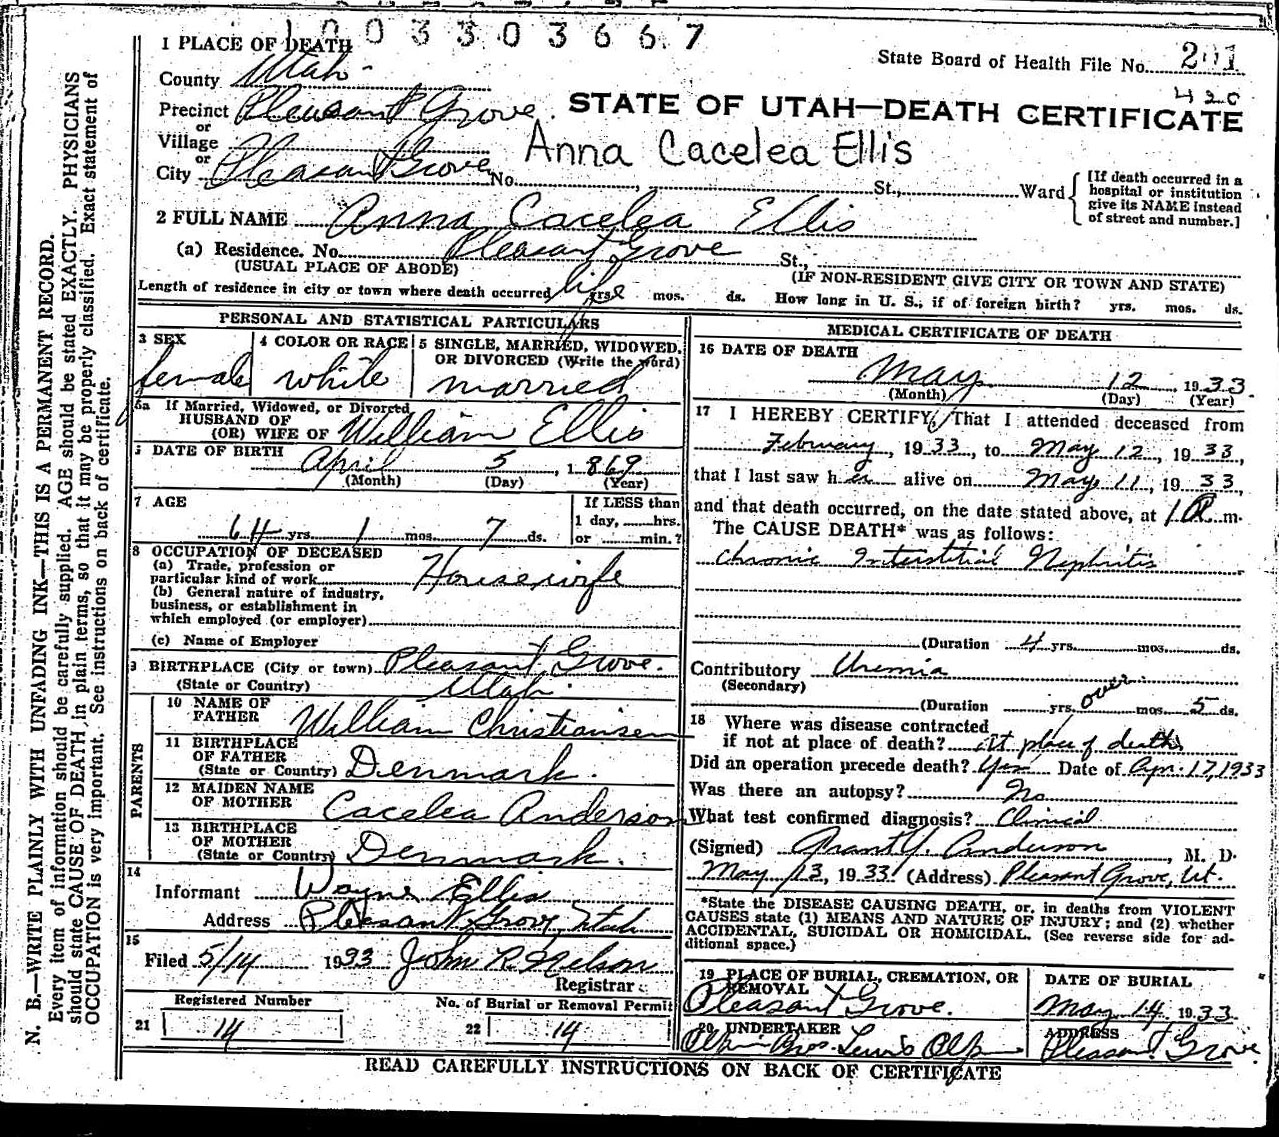 1003303667
1 PLACE OF DEATH
State Board of Health File No. 201
County Utah
420
Precinct Pleasant Grove. STATE OF UTAH—DEATH CERTIFICATE
or
Village
Anna Cacelea Ellis
or
City Pleasant Grove No. , St., Ward
[If death occurred in a
hospital or institution
give its NAME instead
of street and number.]
2 FULL NAME Anna Cacelea Ellis
(a) Residence. No. Pleasant Grove St.,
(USUAL PLACE OF ABODE) (IF NON-RESIDENT GIVE CITY OR TOWN AND STATE)
Length of residence in city or town where death occurred life yrs. mos. ds. How long in U. S., if of foreign birth? yrs. mos. ds.
PERSONAL AND STATISTICAL PARTICULARS
3 SEX
female
4 COLOR OR RACE
white
5 SINGLE, MARRIED, WIDOWED,
OR DIVORCED (Write the word)
married
5a If Married, Widowed, or Divorced
HUSBAND OF
(OR) WIFE OF William Ellis
DATE OF BIRTH April 5, 1869
(Month) (Day) (Year)
7 AGE
64 yrs. 1 mos. 7 ds.
If LESS than
1 day, hrs.
or min.?
8 OCCUPATION OF DECEASED
(a) Trade, profession or
particular kind of work Housewife
(b) General nature of industry,
business, or establishment in
which employed (or employer)
(c) Name of Employer
9 BIRTHPLACE (City or town) Pleasant Grove.
(State or Country) Utah.
PARENTS
10 NAME OF
FATHER William Christiansen
11 BIRTHPLACE
OF FATHER
(State or Country) Denmark.
12 MAIDEN NAME
OF MOTHER Cacelea Anderson
13 BIRTHPLACE
OF MOTHER
(State or Country) Denmark.
14
Informant Wayne Ellis
Address Pleasant Grove, Utah
15
Filed 5/14 1933 John R Nelson
Registrar
Registered Number
21 14
No. of Burial or Removal Permit
22 14
MEDICAL CERTIFICATE OF DEATH
16 DATE OF DEATH
May 12, 1933.
(Month) (Day) (Year)
17 I HEREBY CERTIFY, That I attended deceased from
February, 1933, to May 12, 1933,
that I last saw her alive on May 11, 1933,
and that death occurred, on the date stated above, at 1 a m.
The CAUSE DEATH* was as follows:
Chronic Interstitial Nephritis
(Duration 4 yrs. mos. ds.
Contributory Uremia
(Secondary)
over
(Duration yrs. mos. 5 ds.
18 Where was disease contracted
if not at place of death? At place of death
Did an operation precede death? Yes Date of Apr. 17, 1933
Was there an autopsy? No.
What test confirmed diagnosis? Clinical
(Signed) Grant Y. Anderson, M. D.
May 13, 1933 (Address) Pleasant Grove, Ut.
*State the DISEASE CAUSING DEATH, or, in deaths from VIOLENT
CAUSES state (1) MEANS AND NATURE OF INJURY; and (2) whether
ACCIDENTAL, SUICIDAL OR HOMICIDAL. (See reverse side for ad-
ditional space.)
19 PLACE OF BURIAL, CREMATION, OR
REMOVAL
Pleasant Grove.
DATE OF BURIAL
May 14, 1933.
20 UNDERTAKER
Olpin Bros. Lewis Olpin
ADDRESS
Pleasant Grove.
READ CAREFULLY INSTRUCTIONS ON BACK OF CERTIFICATE
N. B.—WRITE PLAINLY WITH UNFADING INK—THIS IS A PERMANENT RECORD.
Every item of information should be carefully supplied. AGE should be stated EXACTLY. PHYSICIANS
should state CAUSE OF DEATH in plain terms, so that it may be properly classified. Exact statement of
OCCUPATION is very important. See instructions on back of certificate.